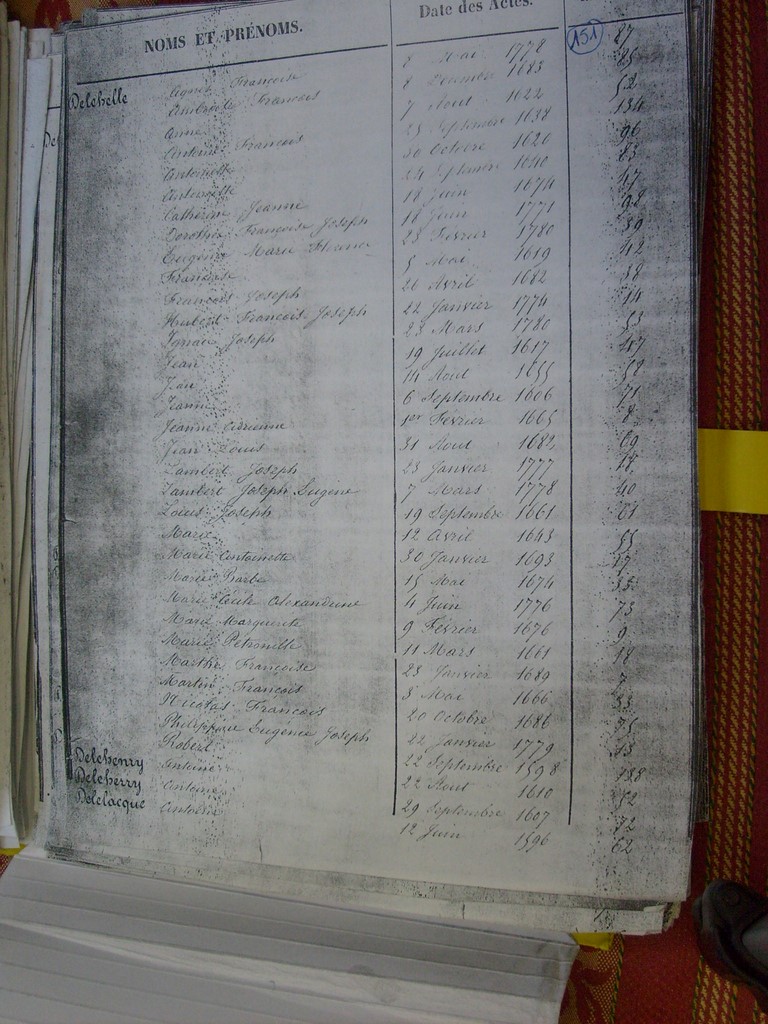 NOMS ET PRÉNOMS. Date des Actes.
151
Delehelle Agnes Francoise 8 Mai 1778 27
Ambroise Francois 8 Fevrier 1683 25
Anne 7 Aout 1622 52
Antoine Francois 25 Septembre 1638 134
Antoinette 20 Octobre 1620 96
Antoinette 24 Septembre 1640 83
Catherine Jeanne 18 Juin 1674 47
Dorothée Francoise Joseph 18 Juin 1771 98
Eugene Marie 28 Février 1780 39
Francoise 5 Mai 1619 42
Francois Joseph 26 Avril 1682 38
Hubert Francois Joseph 22 Janvier 1774 14
Ignace Joseph 23 Mars 1780 53
Jean 19 Juillet 1617 47
Jean 14 Aout 1655 58
Jeanne 6 Septembre 1606 71
Jeanne Adrienne 1er Février 1665 8
Jean Louis 31 Aout 1682 69
Lambert Joseph 23 Janvier 1777 18
Lambert Joseph Eugene 7 Mars 1778 40
Louis Joseph 19 Septembre 1661 61
Marie 12 Avril 1643 55
Marie Antoinette 30 Janvier 1693 17
Marie Barbe 15 Mai 1674 35
Marie Cecile Alexandrine 4 Juin 1776 73
Marie Marguerite 9 Février 1676 9
Marie Petronille 11 Mars 1661 18
Marthe Francoise 23 Janvier 1689 7
Martin Francois 8 Mai 1666 33
Nicolas Francois 20 Octobre 1686 75
Philippine Eugenie Joseph 22 Janvier 1779 13
Robert 22 Septembre 1598 188
Delehenry Antoine 22 Aout 1610 52
Deleherry Antoine 29 Septembre 1607 72
Delelacque Antoine 12 Juin 1596 62